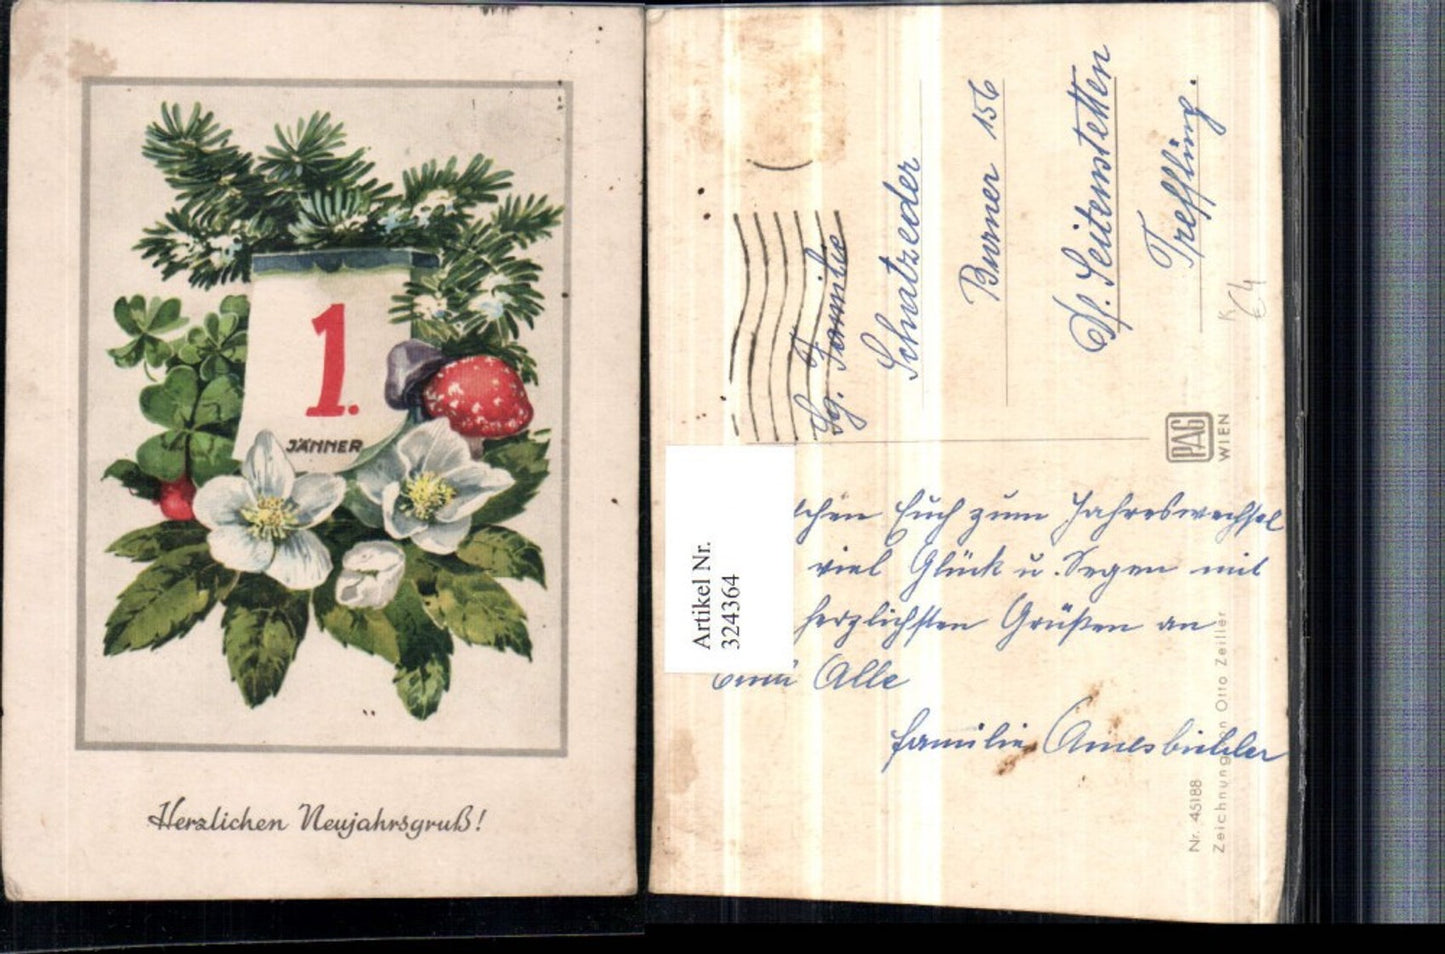 1.
JÄNNER
Herzlichen Neujahrsgruß!
Fg. Familie
Schatzeder
Burner 156
St. Peter
Treffling.
K
€4
PAG
WIEN
Artikel Nr.
324364
Euch zum Jahreswechsel
viel Glück u. Segen mit
herzlichsten Grüßen an
Alle
Familie Amesbichler
Nr. 45188
Zeichnung von Otto Zeiller